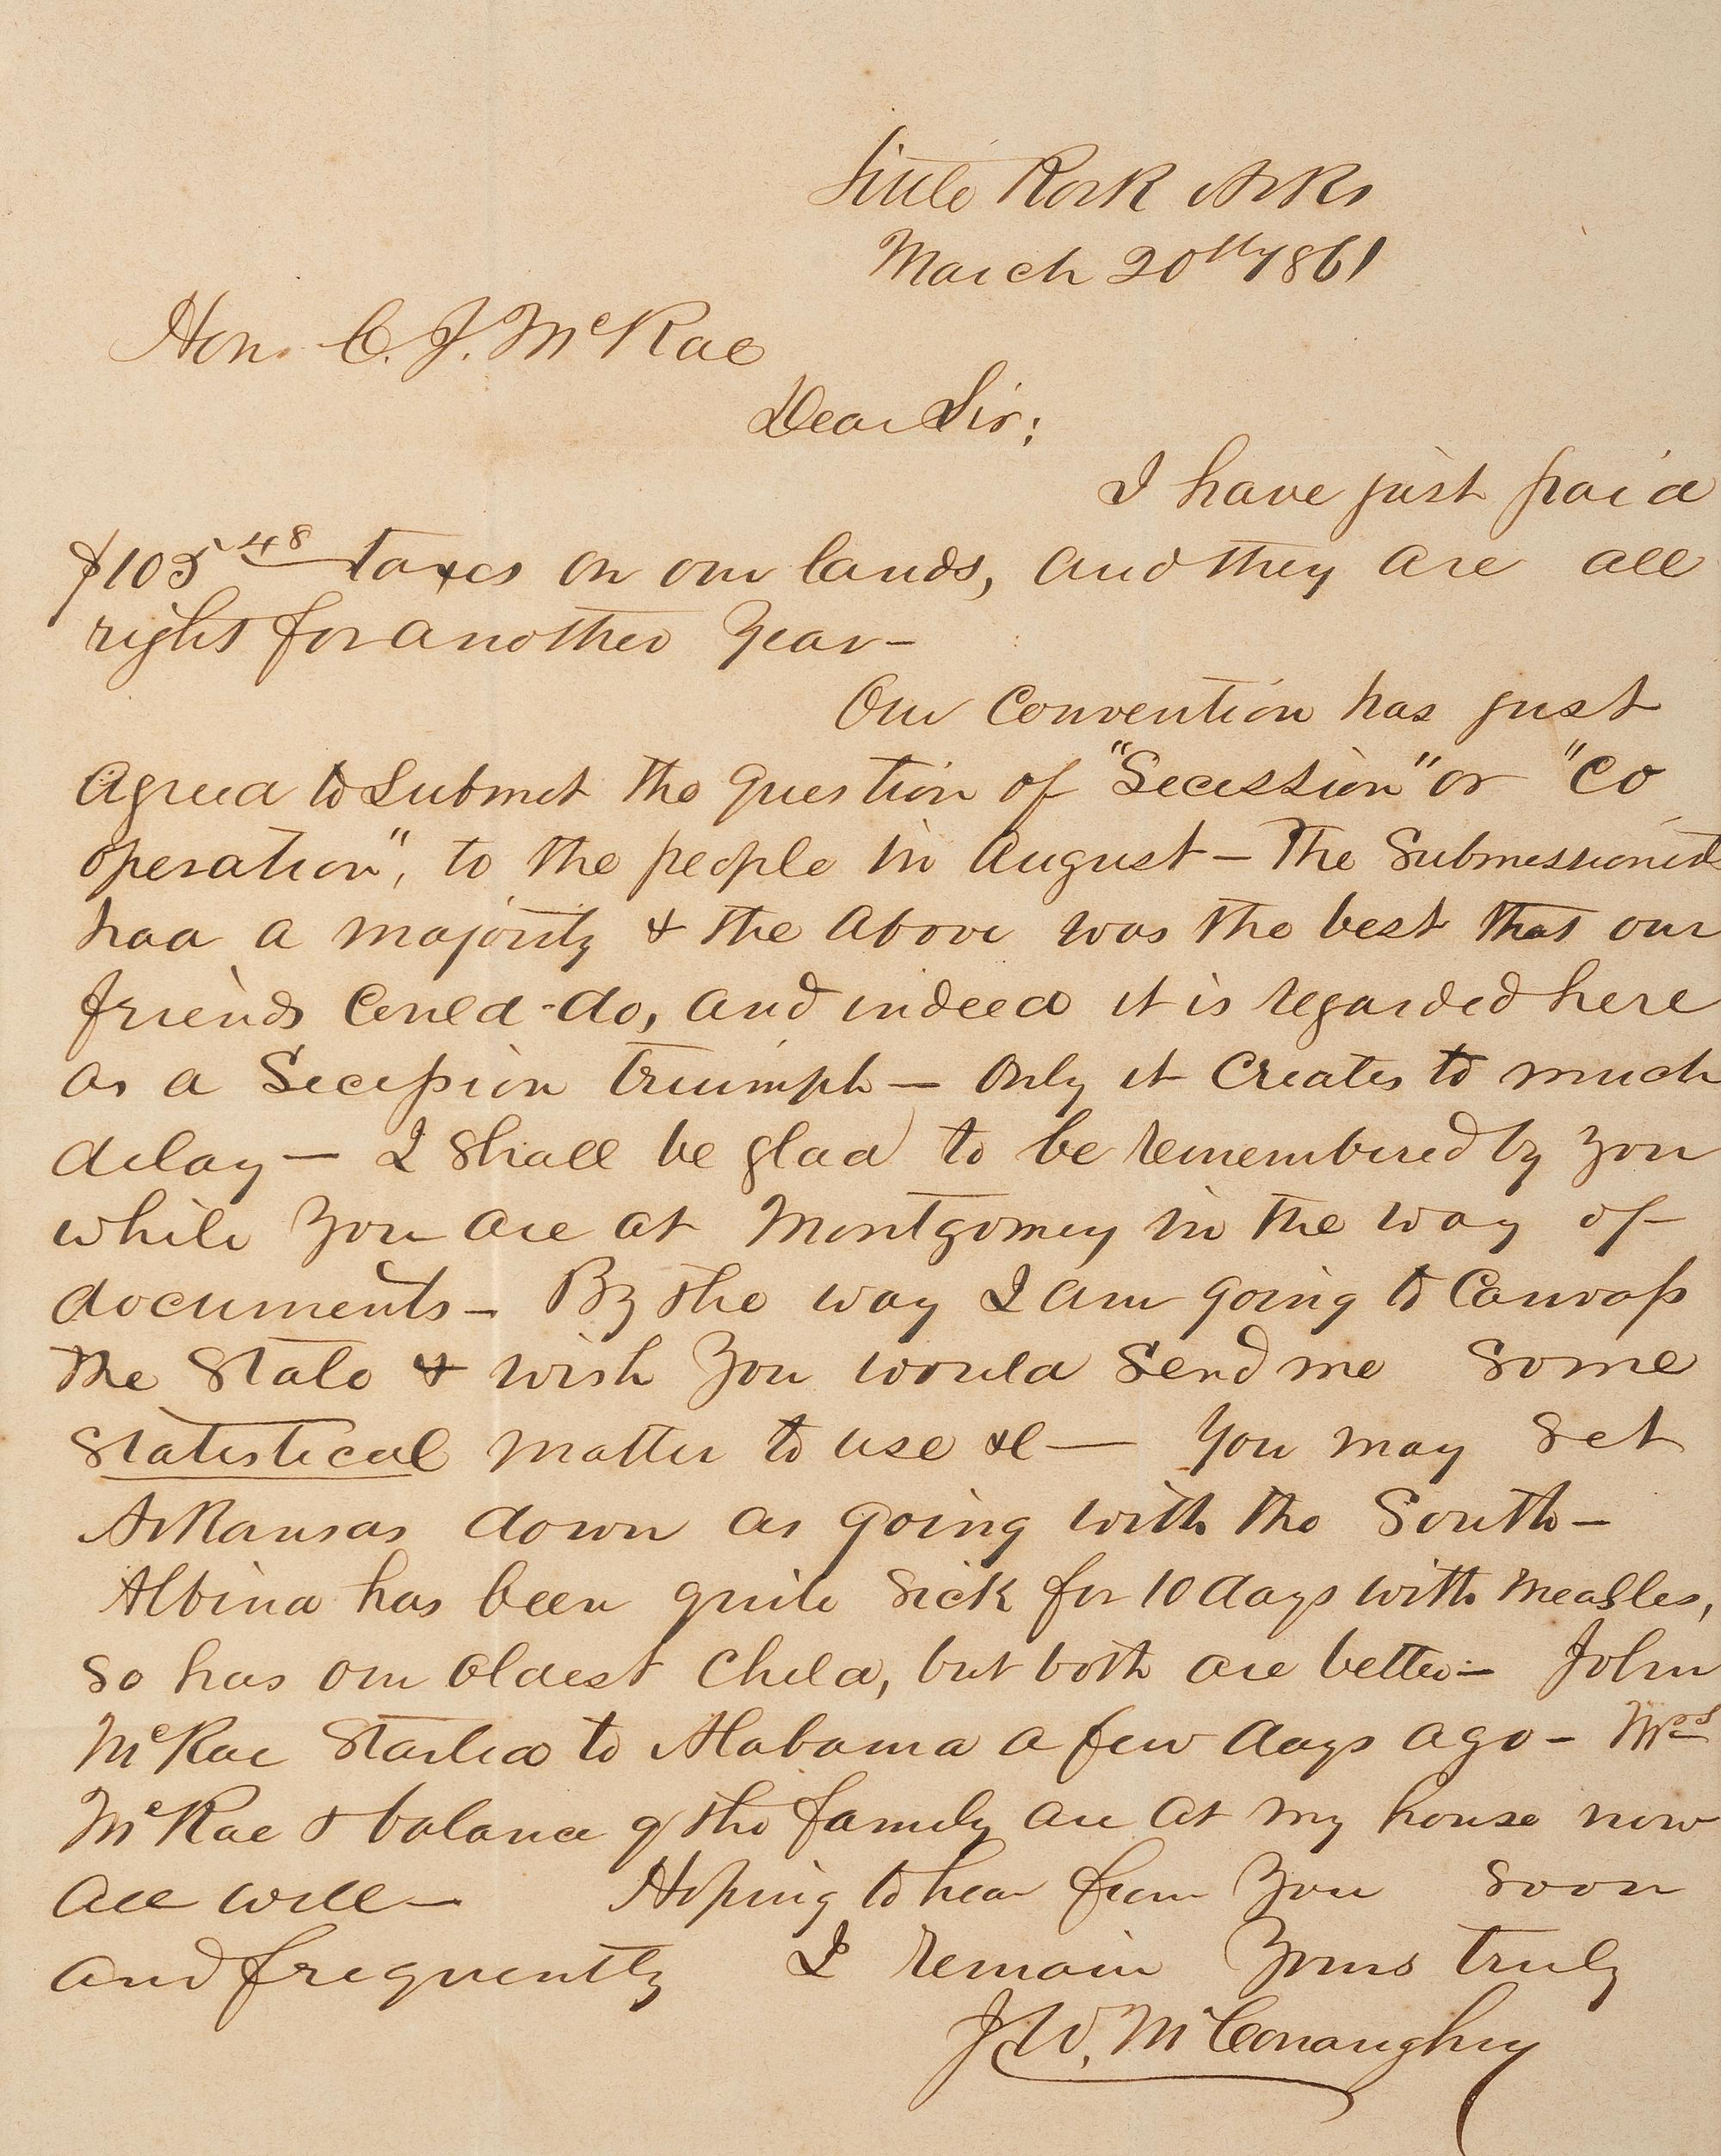 Little Rock Arks
March 20th 1861
Hon. C. J. McRae
Dear Sir:
I have just paid
$105 48 taxes on our lands, and they are all
right for another year—
Our Convention has just
agreed to submit the question of "Secession" or "Co
operation", to the people in August— The Submissionists
had a majority & the above was the best that our
friends could do, and indeed it is regarded here
as a Secession triumph— only it creates to much
delay— I shall be glad to be remembered by you
while you are at Montgomery in the way of
documents— By the way I am going to Canvass
the State & wish you would send me some
statistical matter to use &c— You may set
Arkansas down as going with the South—
Albina has been quite sick for 10 days with measles,
so has our oldest child, but both are better— John
McRae started to Alabama a few days ago— Mrs
McRae & balance of the family are at my house now
all well— Hoping to hear from you soon
and frequently I remain Yours truly
J. W. McConaughey